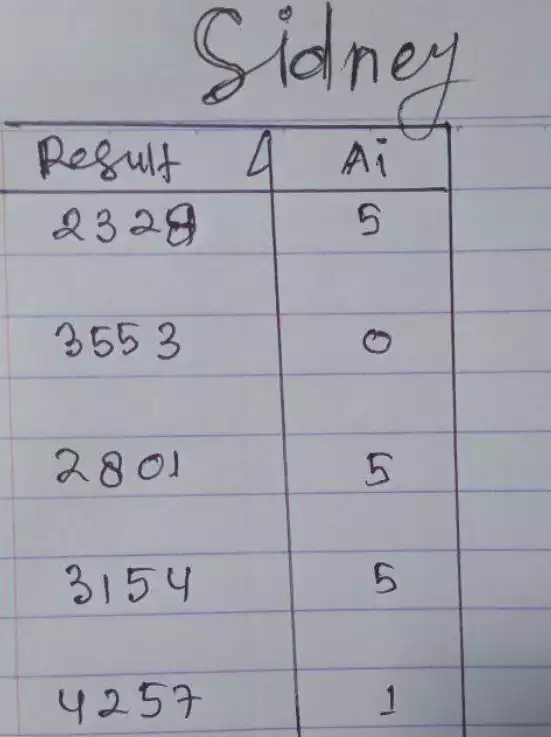 Sidney
Result Ai
2328 5
3553 0
2801 5
3154 5
4257 1